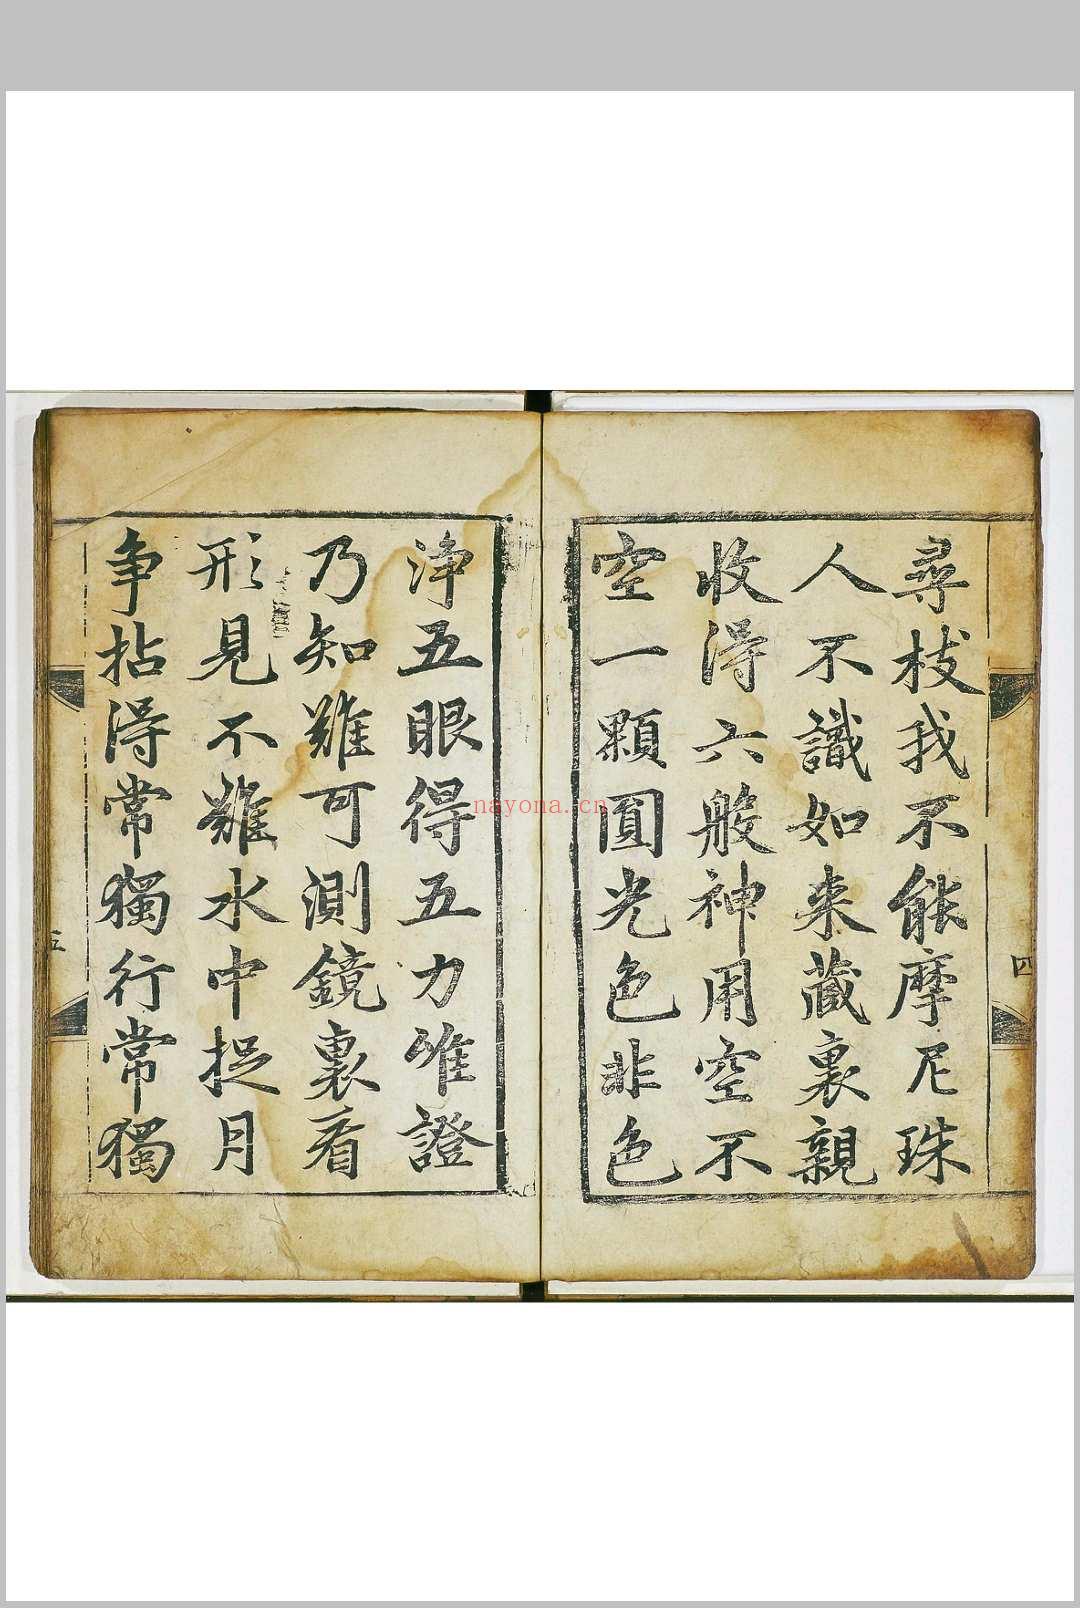 尋枝我不能摩尼珠
人不識如来藏裏親
收得六般神用空不
空一顆圓光色非色
浄五眼得五力唯證
乃知難可測鏡裏看
形見不難水中捉月
争拈得常獨行常獨
四
五
nayona.cn